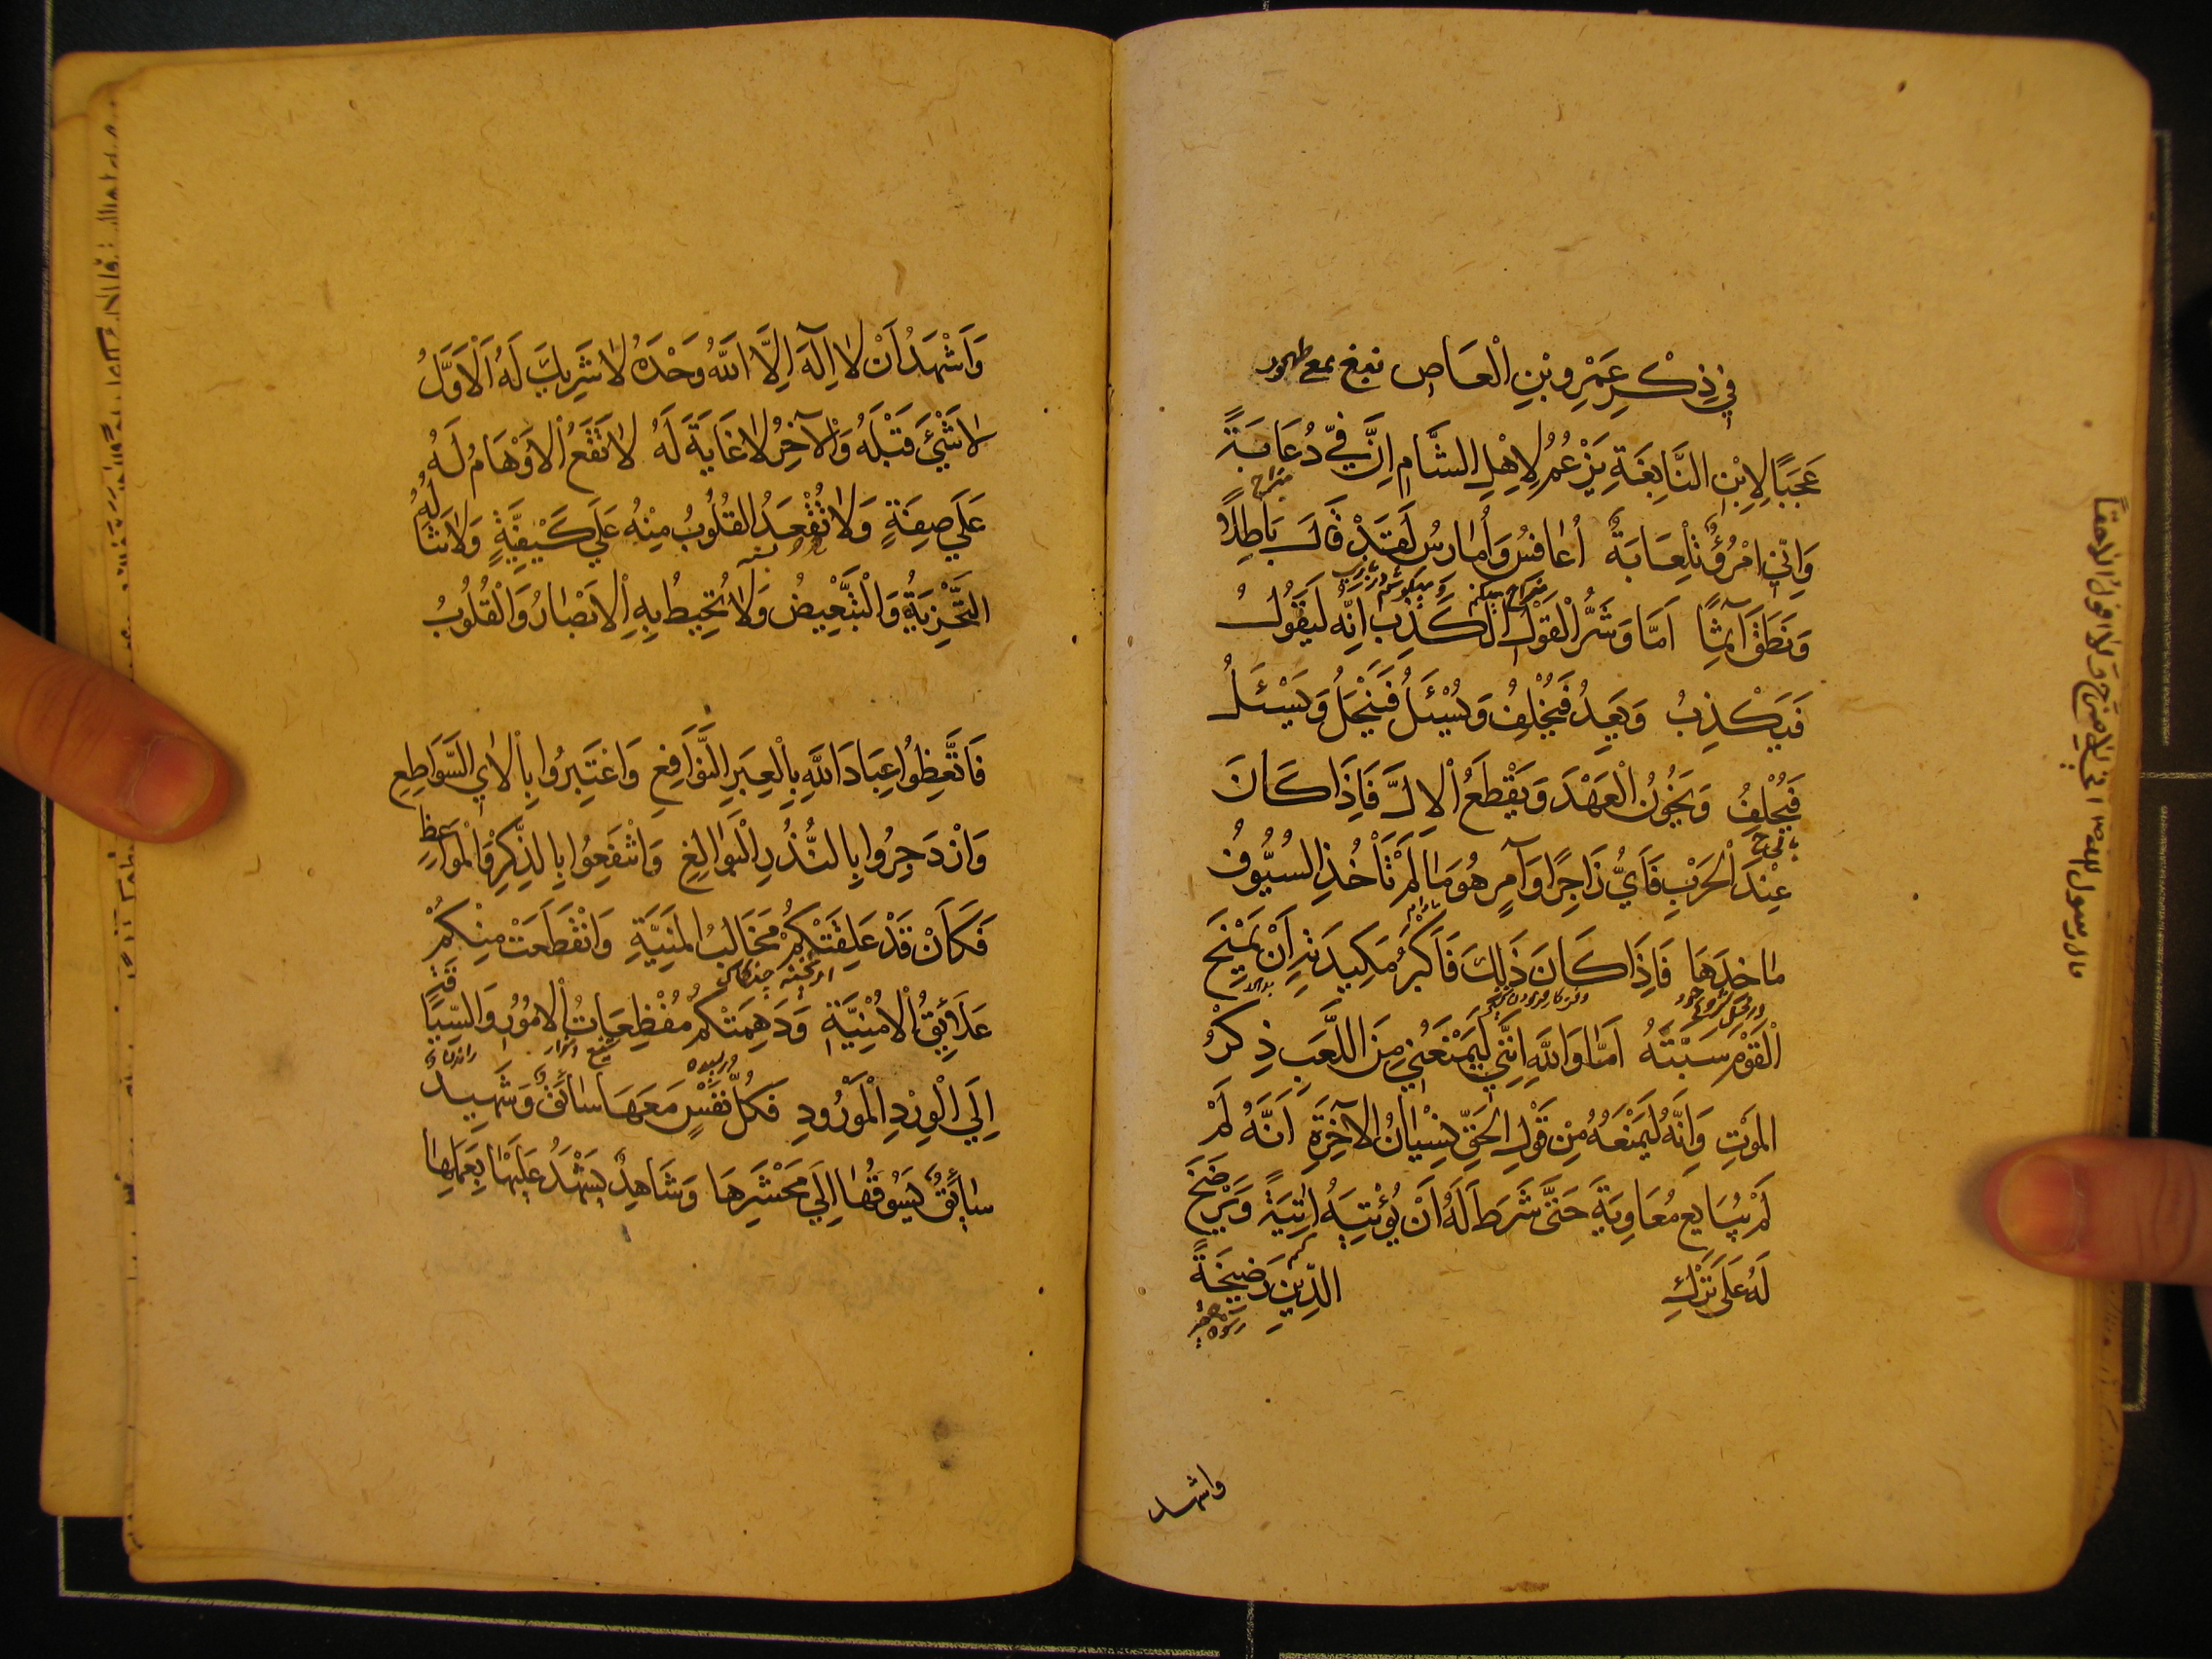 في ذِكْرِ عَمْرِو بْنِ الْعَاصِ نبغ بمعنى ظهور
عَجَبًا لِابْنِ النَّابِغَةِ يَزْعُمُ لِاَهْلِ الشَّامِ اِنَّ فِيَّ دُعَابَةً
مزاح
وَاِنّي امْرُؤٌ تِلْعَابَةٌ اُعَافِسُ وَاُمَارِسُ لَقَدْ قَالَ بَاطِلًا
وَنَطَقَ آثِمًا اَمَا وَشَرُّ الْقَوْلِ الْكَذِبُ اِنَّهُ لَيَقُولُ
فَيَكْذِبُ وَيَعِدُ فَيُخْلِفُ وَيُسْئَلُ فَيَبْخَلُ وَيَسْئَلُ
فَيُحْلِفُ وَيَخُونُ الْعَهْدَ وَيَقْطَعُ الْاِلَّ فَاِذَا كَانَ
عِنْدَ الْحَرْبِ فَاَيُّ زَاجِرًا وَآمِرٍ هُوَ مَا لَمْ تَأْخُذِ السُّيُوفُ
مَاخِذَهَا فَاِذَا كَانَ ذَلِكَ فَاَكْبَرُ مَكِيدَتِهِ اَنْ يَمْنَحَ
الْقَوْمَ سَبَّتَهُ اَمَا وَاللَّهِ اِنَّنِي لَيَمْنَعُنِي مِنَ اللَّعَبِ ذِكْرُ
الْمَوْتِ وَاِنَّهُ لَيَمْنَعُهُ مِنْ قَوْلِ الْحَقِّ نِسْيَانُ الْآخِرَةِ اَنَّهُ لَمْ
لَمْ يُبَايِعْ مُعَاوِيَةَ حَتَّى شَرَطَ لَهُ اَنْ يُؤْتِيَهُ اَتِيَّةً وَيَرْضَخَ
لَهُ عَلَى تَرْكِ الدِّينِ رَضِيخَةً
واشهد
وَاَشْهَدُ اَنْ لَا اِلَهَ اِلَّا اللَّهُ وَحْدَهُ لَا شَرِيكَ لَهُ اَلْاَوَّلُ
لَا شَيْئَ قَبْلَهُ وَالْآخِرُ لَا غَايَةَ لَهُ لَا تَقَعُ الْاَوْهَامُ لَهُ
عَلَي صِفَةٍ وَلَا تُقْعَدُ الْقُلُوبُ مِنْهُ عَلَي كَيْفِيَّةٍ وَلَا تَنَالُهُ
التَّجْزِيَةُ وَالتَّبْعِيضُ وَلَا تُحِيطُ بِهِ الْاَبْصَارُ وَالْقُلُوبُ
فَاتَّعِظُوا عِبَادَ اللَّهِ بِالْعِبَرِ النَّوَافِعِ وَاعْتَبِرُوا بِالْاٰيِ السَّوَاطِعِ
وَازْدَجِرُوا بِالنُّذُرِ الْبَوَالِغِ وَانْتَفِعُوا بِالذِّكْرِ وَالْمَوَاعِظِ
فَكَاَنْ قَدْ عَلِقَتْكُمْ مَخَالِبُ الْمَنِيَّةِ وَانْقَطَعَتْ مِنْكُمْ
عَلَائِقُ الْاُمْنِيَّةِ وَدَهِمَتْكُمْ مُفْظِعَاتُ الْاُمُورِ وَالسِّيَاقَةُ
اِلَي الْوِرْدِ الْمَوْرُودِ فَكُلُّ نَفْسٍ مَعَهَا سَائِقٌ وَشَهِيدٌ
سَائِقٌ يَسُوقُهَا اِلَي مَحْشَرِهَا وَشَاهِدٌ يَشْهَدُ عَلَيْهَا بِعَمَلِهَا